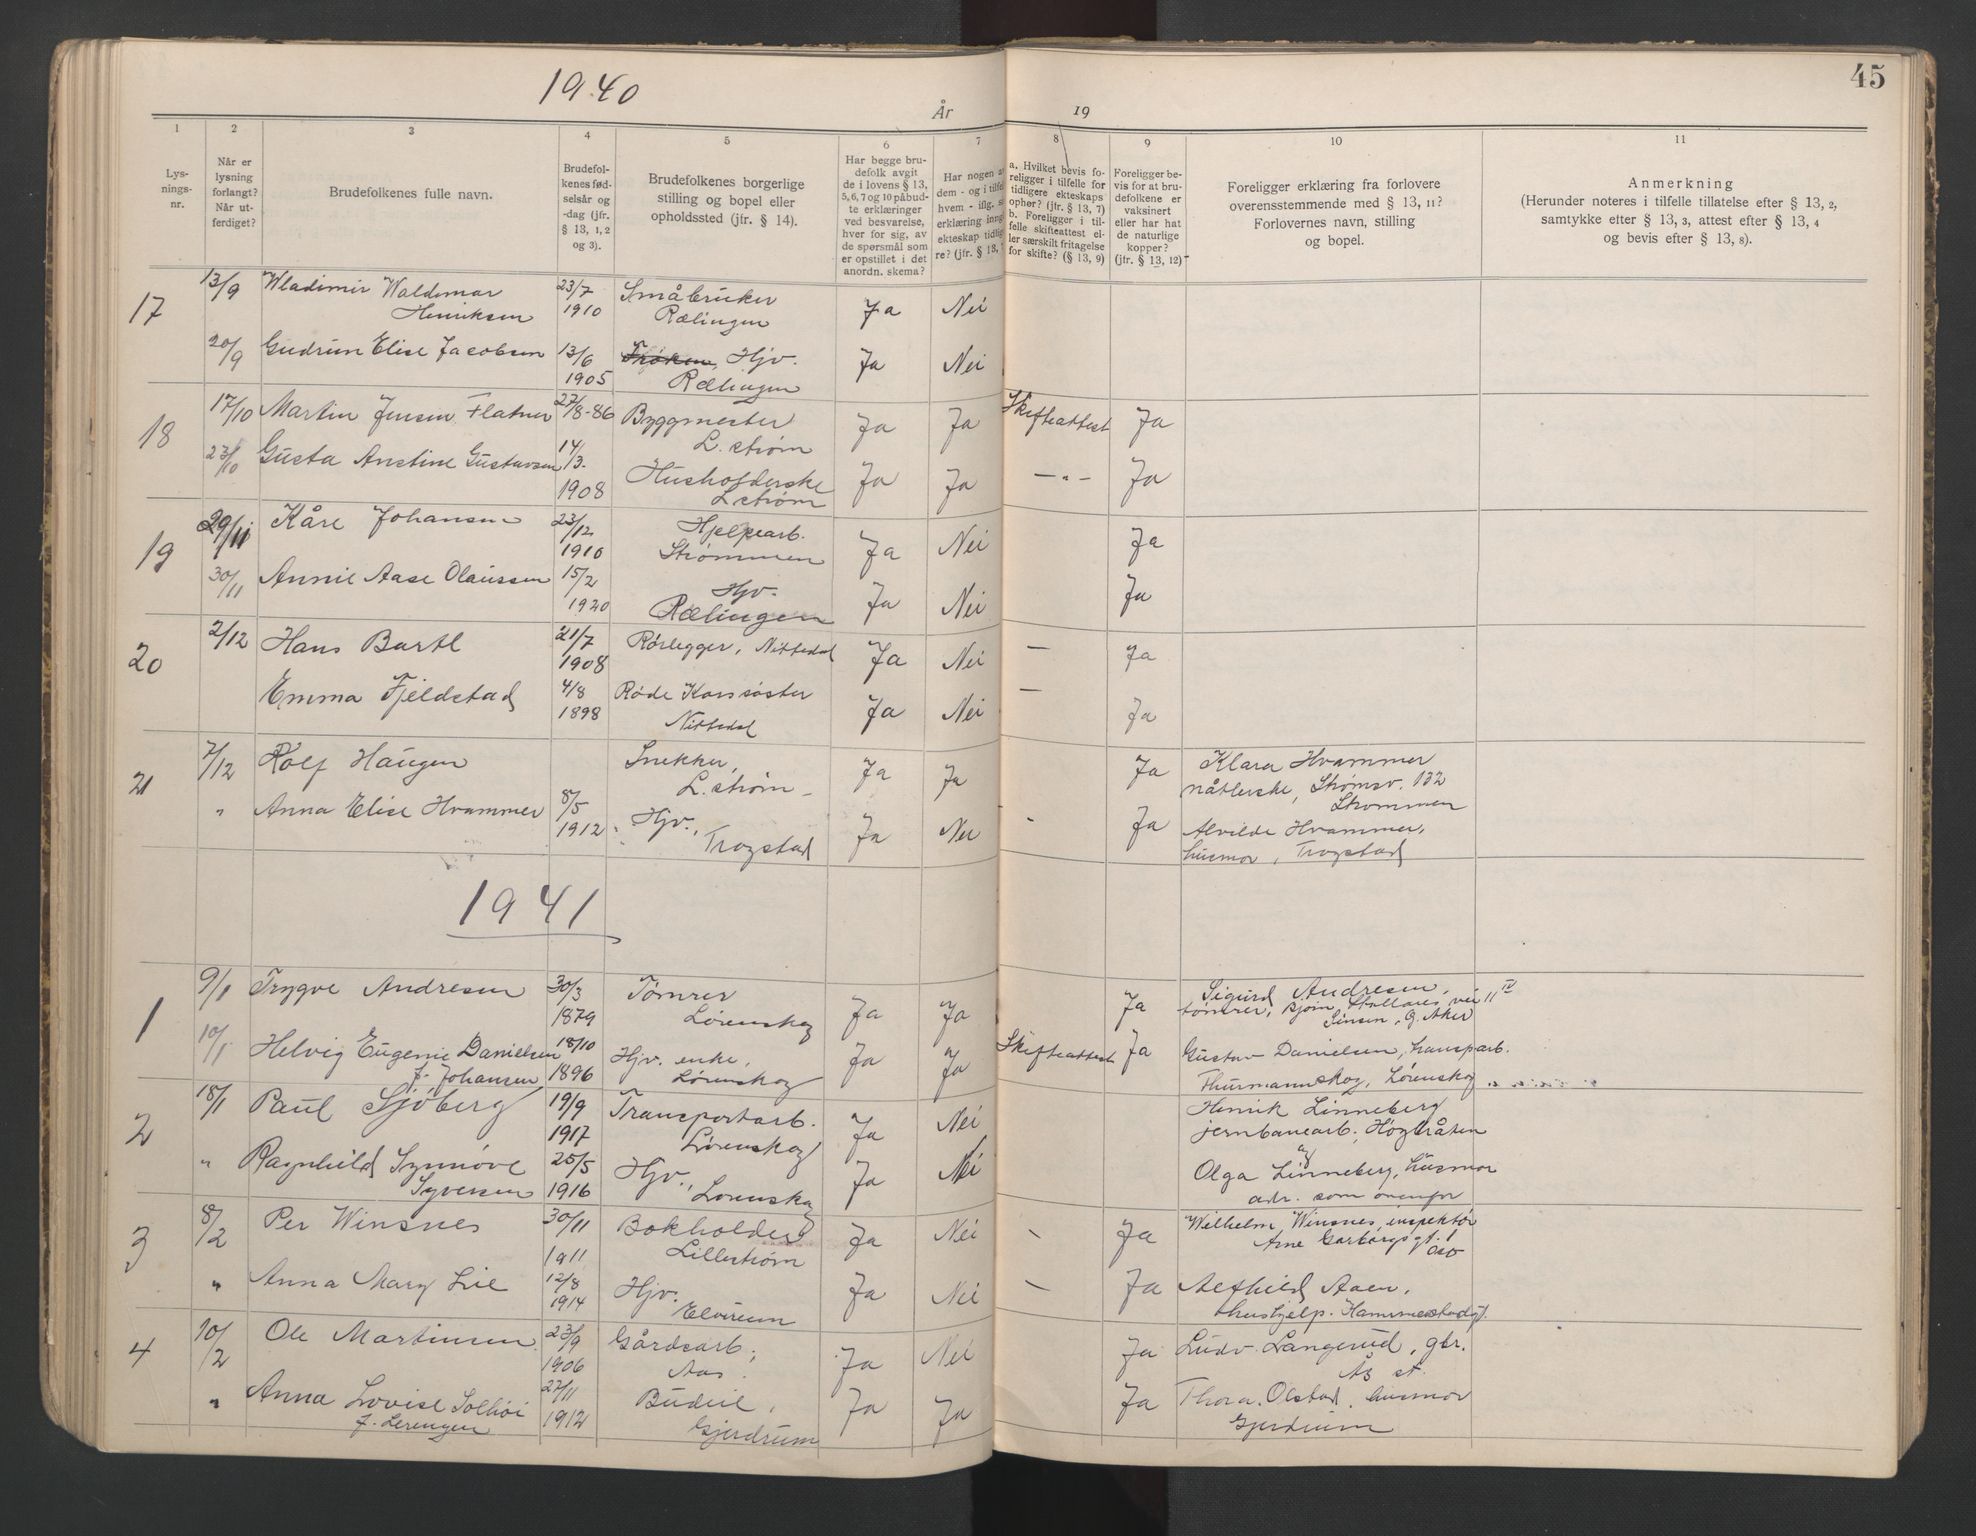 1940
45
År
19
1
2
3
4
5
6
7
8
9
10
11
Lys-
nings-
nr.
Når er
lysning
forlangt?
Når ut-
ferdiget?
Brudefolkenes fulle navn.
Brudefol-
kenes fød-
selsår og
-dag (jfr.
§ 13, 1, 2
og 3).
Brudefolkenes borgerlige
stilling og bopel eller
opholdssted (jfr. § 14).
Har begge bru-
defolk avgit
de i lovens § 13,
5, 6, 7 og 10 påbud-
te erklæringer
ved besvarelse,
hver for sig, av
de spørsmål som
er opstillet i det
anordn. skema?
Har nogen a
dem - og i tilfel
hvem - iflg. s
erklæring inng
ekteskap tidlig
re? (jfr. § 13, 7
a. Hvilket bevis fo-
religger i tilfelle for
tidligere ekteskaps
ophør? (jfr. § 13, 7)
b. Foreligger i til-
felle skifteattest el-
ler særskilt fritagelse
for skifte? (§ 13, 9)
Foreligger be-
vis for at bru-
defolkene er
vaksinert
eller har hat
de naturlige
kopper?
(jfr. § 13, 12)
Foreligger erklæring fra forlovere
overensstemmende med § 13, 11?
Forlovernes navn, stilling
og bopel.
Anmerkning
(Herunder noteres i tilfelle tillatelse efter § 13, 2,
samtykke efter § 13, 3, attest efter § 13, 4
og bevis efter § 13, 8).
17 13/9 Wladimir Waldemar 23/7 Småbruker Ja Nei
Henriksen 1910 Rælingen
20/9 Gudrun Elise Jacobsen 13/6 Frøken, Hjv. Ja Nei
1905 Rælingen
18 17/10 Martin Jensen Flatner 27/8-86 Byggmester Ja Ja Skifteattest Ja
L.strøm
23/10 Gusta Anstine Gustavsen 14/3. Husholderske Ja Ja —"— Ja
1908 L.strøm
19 29/11 Kåre Johansen 23/12 Hjelpearb. Ja Nei Ja
1910 Strømmen
30/11 Annie Aase Olaussen 15/2 Hjv. Ja Nei Ja
1920 Rælingen
20 2/12 Hans Bartl 21/7 Rørlegger, Nittedal Ja Nei — Ja
1908
Emma Fjeldstad 4/8 Røde Korssøster Ja Nei — Ja
1898 Nittedal
21 7/12 Rolf Haugen Snekker, Ja Ja Ja Klara Hvammer
L.strøm nåtlerske, Strømsv. 132
Strømmen
" Anna Elise Hvammer 8/5 Hjv., Ja Nei - Ja Alvilde Hvammer,
1912 Trogstad husmor, Trogstad
1941
1 9/1 Trygve Andresen 30/3 Tømrer Ja Ja Ja Sigurd Andresen,
1879 Lørenskog tømrer, Bjørn Stallares vei 11 IV
Sinsen, Ø. Aker
10/1 Helvig Eugenie Danielsen 18/10 Hjv. enke, Ja Ja Skifteattest Ja Gustav Danielsen, transparb.
f. Johansen 1896 Lørenskog Thurmannskog, Lørenskog
2 18/1 Paul Sjöberg 19/9 Transportarb. Ja Nei Henrik Linneberg
1917 Lørenskog jernbanearb., Høgbråten
og
" Ragnhild Synnöve 25/5 Hjv., Ja Nei Olga Linneberg, husmor
Syversen 1916 Lørenskog adr. som ovenfor
3 8/2 Per Winsnes 30/11 Bokholder Ja Nei - Ja Wilhelm Winsnes, inspektör
1911 Lillestrøm Arne Garborgsgt. 1
Oslo
" Anna Mary Lie 12/8 Hjv. Ja Nei - Ja Alfhild Aaen,
1914 Elverum hushjelp. Hammerstadgt.
4 10/2 Ole Martinsen 23/9 Gårdsarb., Ja Nei Ja Ludv. Langerud, gbr.
1906 Aas. Ås st.
" Anna Lovise Solhöi 27/11 Budeie, Ja Ja Ja Thora Olstad, husmor
f. Lerengen 1912 Gjerdrum Gjerdrum